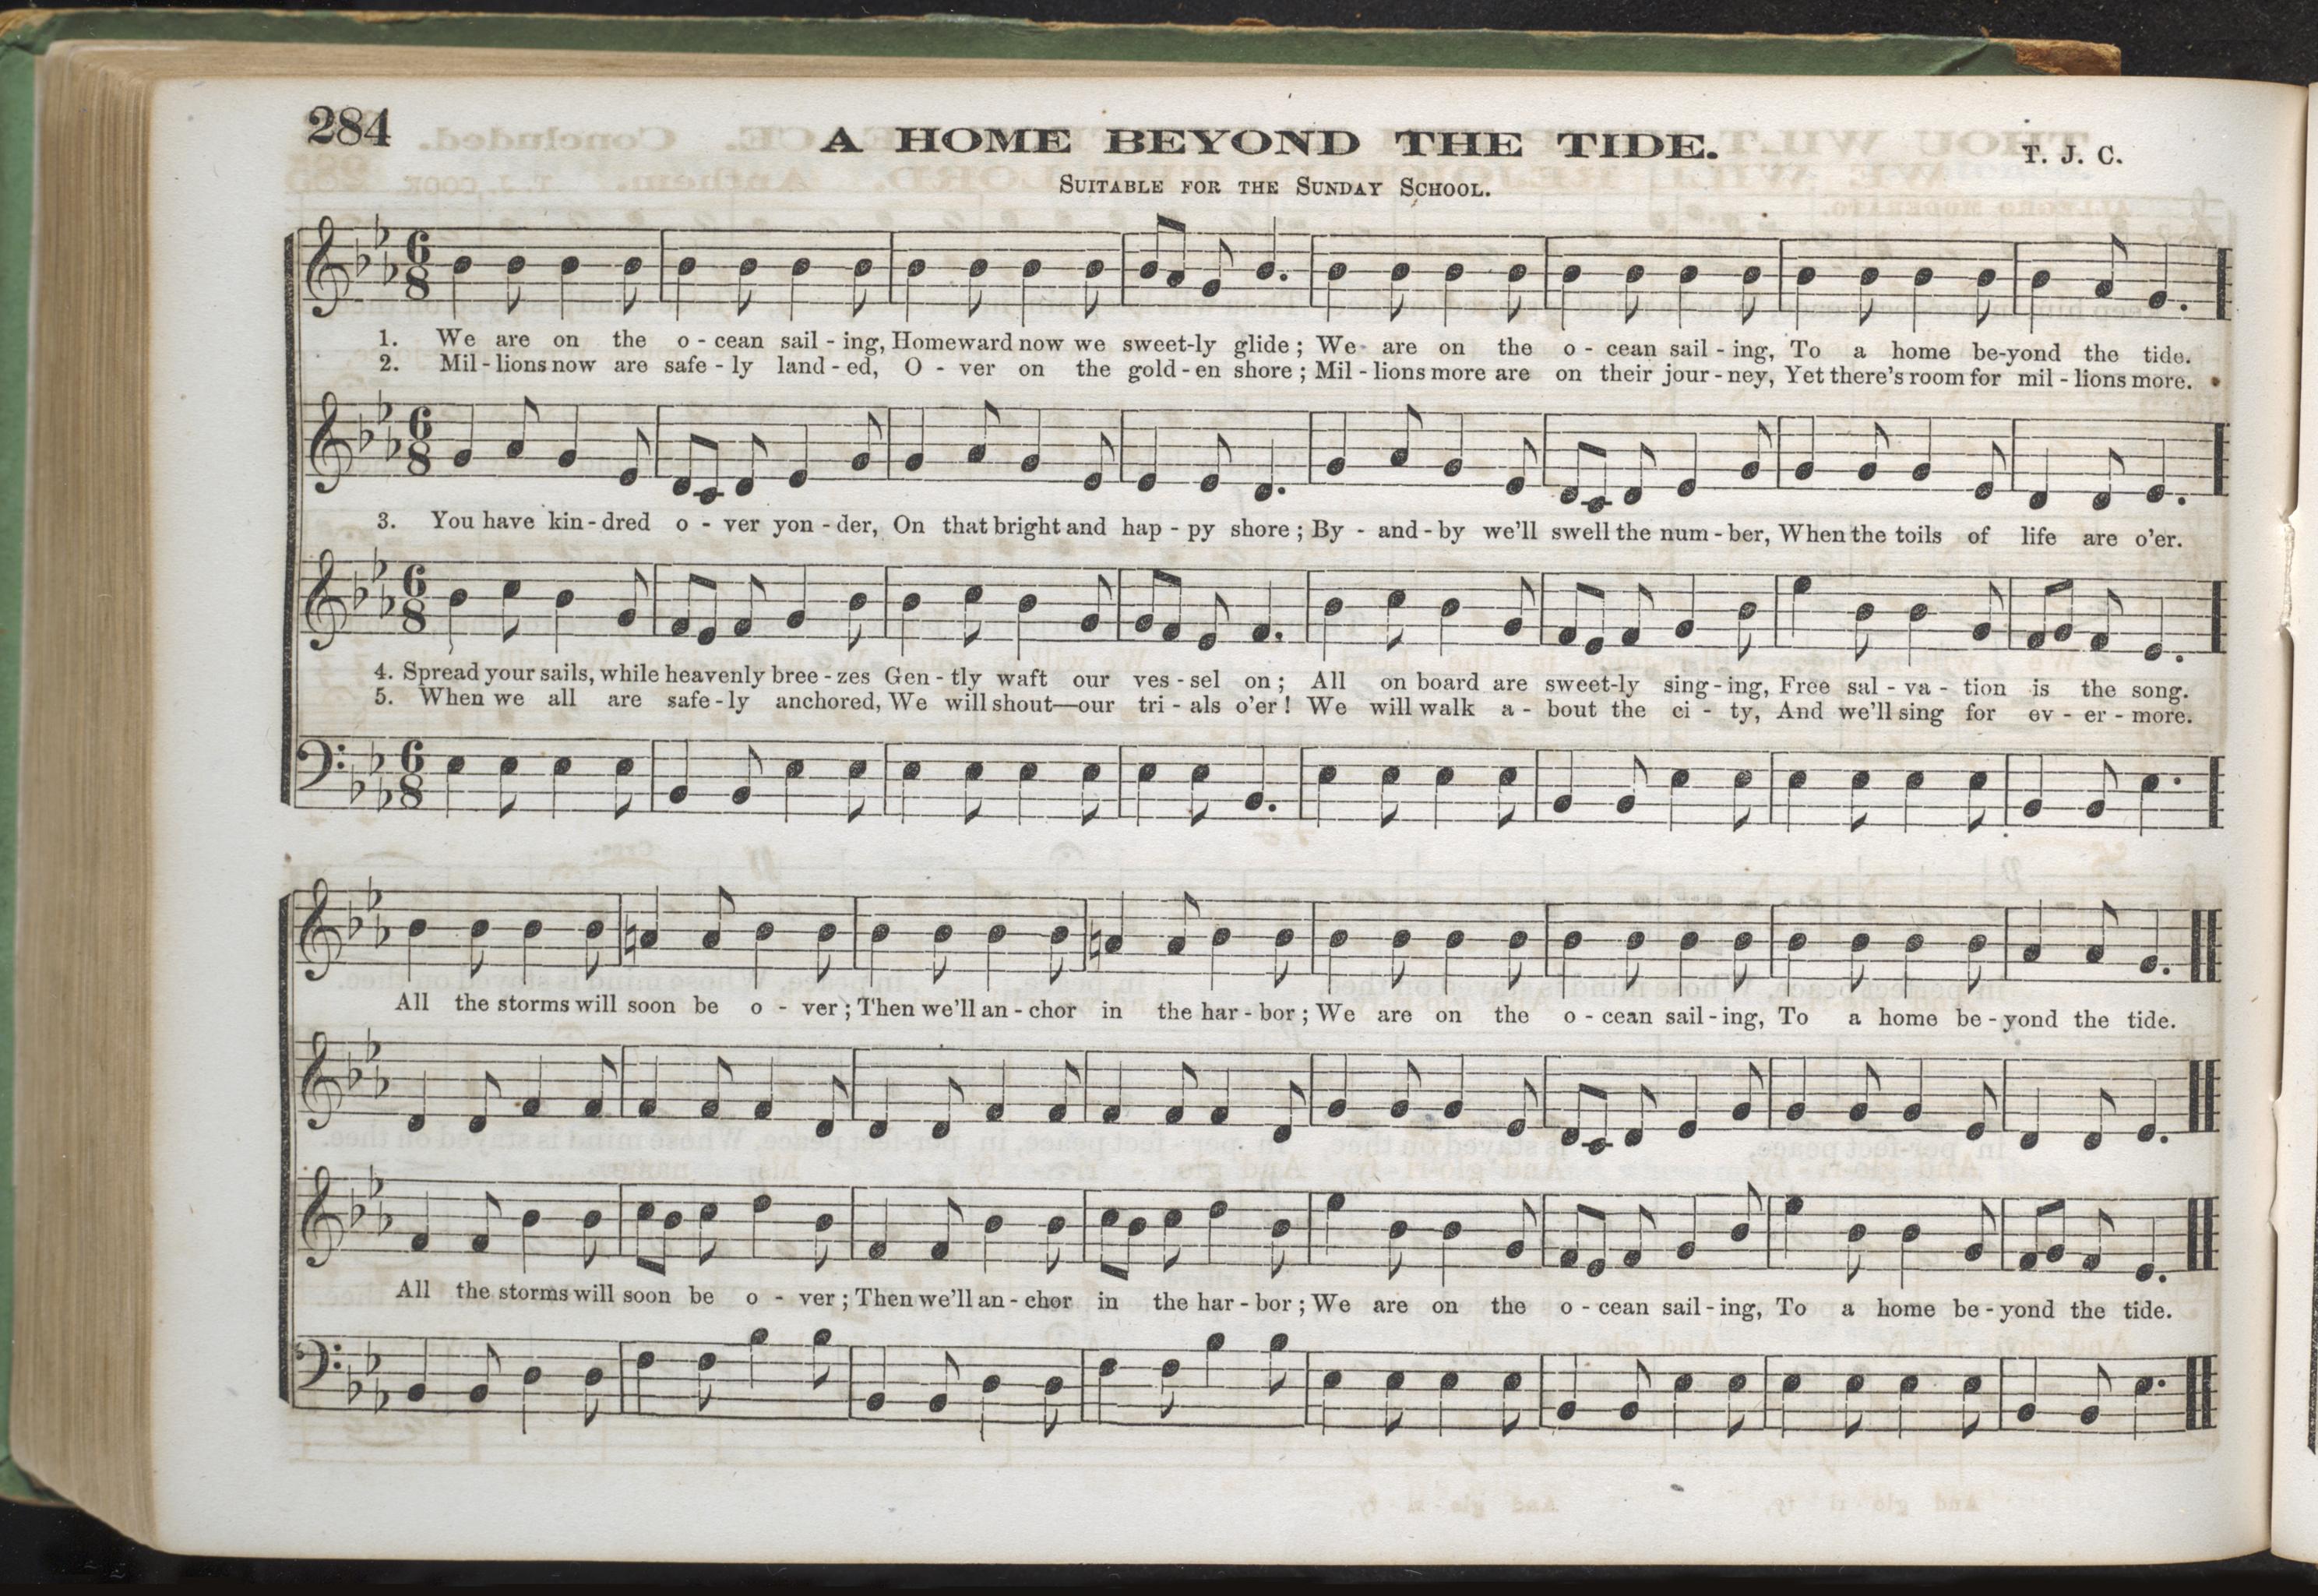 284
A HOME BEYOND THE TIDE.
T. J. C.
SUITABLE FOR THE SUNDAY SCHOOL.
6 8
1. We are on the o - cean sail - ing, Homeward now we sweet-ly glide; We are on the o - cean sail - ing, To a home be-yond the tide.
2. Mil - lions now are safe - ly land - ed, O - ver on the gold - en shore; Mil - lions more are on their jour - ney, Yet there's room for mil - lions more.
6 8
3. You have kin - dred o - ver yon - der, On that bright and hap - py shore; By - and - by we'll swell the num - ber, When the toils of life are o'er.
6 8
4. Spread your sails, while heavenly bree - zes Gen - tly waft our ves - sel on; All on board are sweet-ly sing - ing, Free sal - va - tion is the song.
5. When we all are safe - ly anchored, We will shout—our tri - als o'er! We will walk a - bout the ci - ty, And we'll sing for ev - er - more.
6 8
All the storms will soon be o - ver; Then we'll an - chor in the har - bor; We are on the o - cean sail - ing, To a home be - yond the tide.
All the storms will soon be o - ver; Then we'll an - chor in the har - bor; We are on the o - cean sail - ing, To a home be - yond the tide.